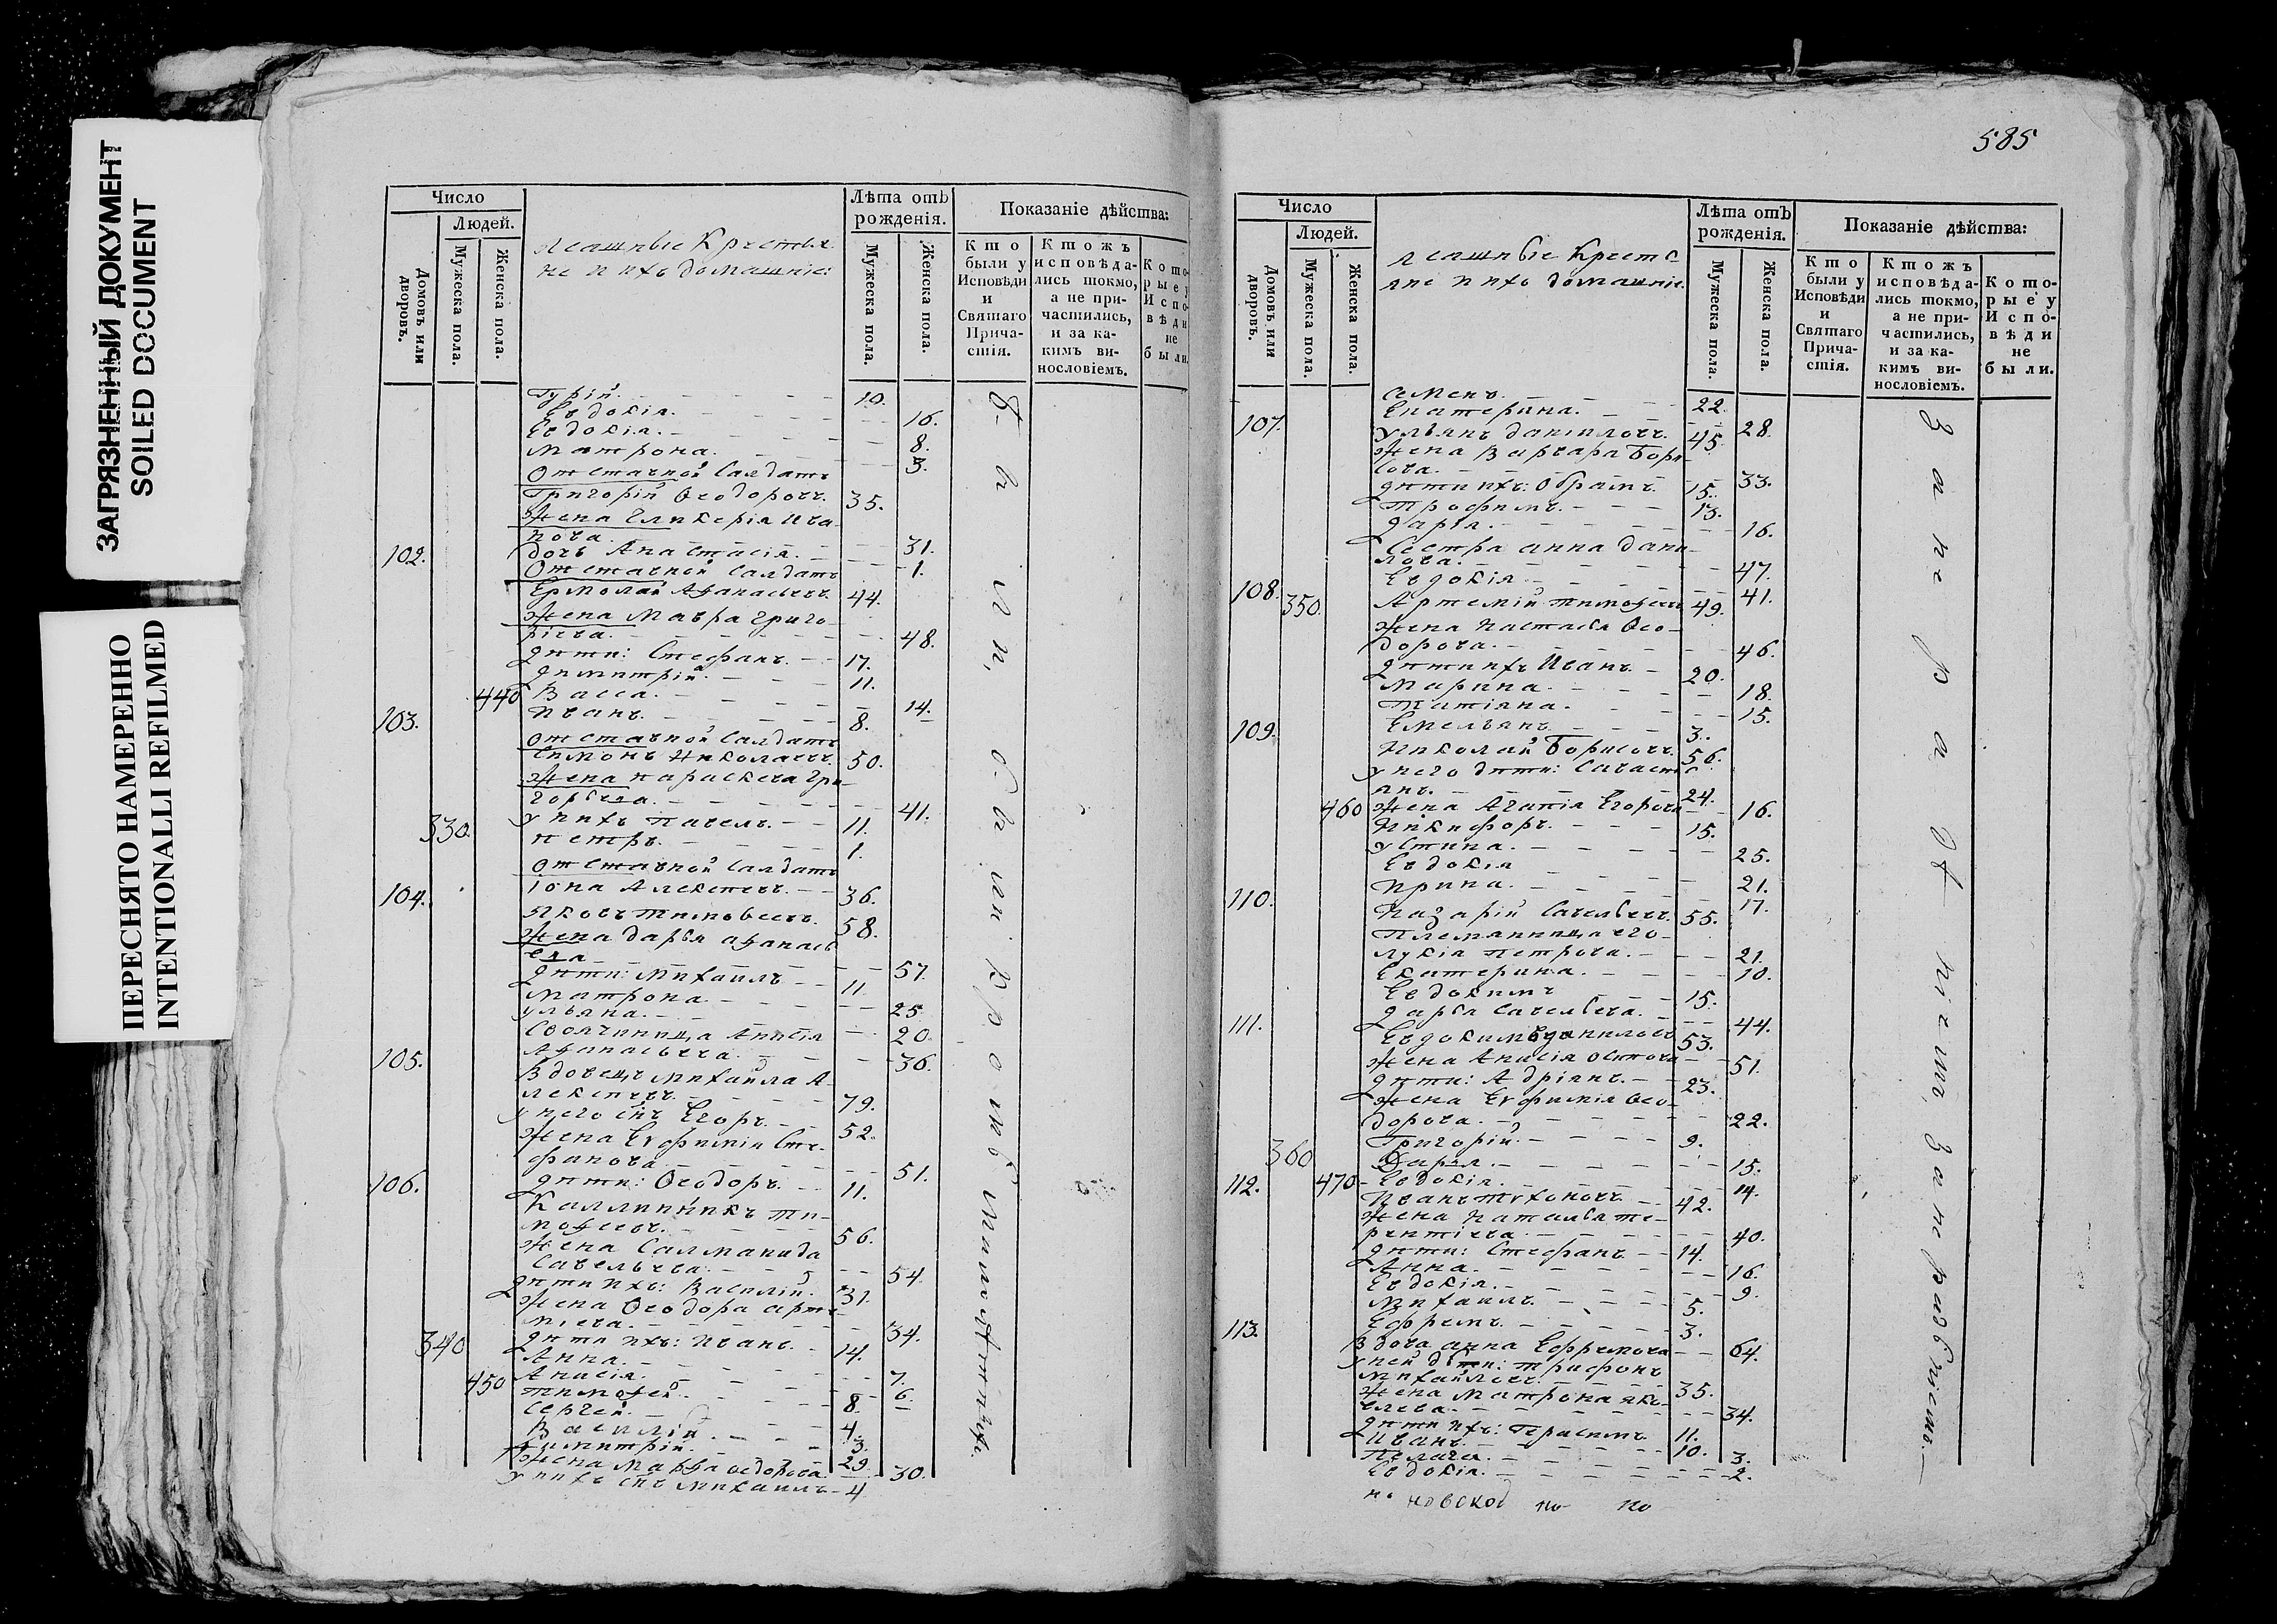 ЗАГРЯЗНЕННЫЙ ДОКУМЕНТ
SOILED DOCUMENT
ПЕРЕСНЯТО НАМЕРЕННО
INTENTIONALLI REFILMED
Число
Людей.
Домовъ или дворовъ.
Мужеска пола.
Женска пола.
Крестья
не и ихъ домашніе:
Лѣта отъ рожденія.
Мужеска пола.
Женска пола.
Показаніе дѣйства:
Кто были у Исповѣди и Святаго Причастія.
Ктожъ исповѣдались токмо, а не причастились, и за какимъ винословіемъ.
Которые у Исповѣди не были.
Гурій. 10.
Евдокія. 16.
Евдокія. 8.
Матрона. 3.
Отставной Салдатъ
Григорій Ѳеодоровъ. 35.
Жена Гликерія Ива
нова. 31.
102. дочь Анастасія. 1.
Отставной Салдатъ
Ермолай Аѳанасьевъ. 44.
Жена Мавра Григо
ріева. 48.
дѣти: Стефанъ. 17.
Димитрій. 11.
440 Васса. 14.
103. Иванъ. 8.
Отставной Салдатъ
Симонъ Николаевъ. 50.
Жена Параскева Гри
горьева. 41.
330. у нихъ Павелъ. 11.
Петръ. 1.
Отставной Салдатъ
104. Іона Алексѣевъ. 36.
Яковъ Тимоѳеевъ. 58.
Жена Дарья Аѳанась
ева 57.
дѣти: Михаилъ 11.
Матрона. 25.
Ульяна. 20.
Своячиница Анисія
105. Аѳанасьева. 36.
Вдовецъ Михайла А
лексѣевъ. 79.
у него снъ Егоръ. 52.
Жена Евфимія Сте
фанова. 51.
106. дѣти: Ѳеодоръ. 11.
Каллиникъ Ти
моѳеевъ. 56.
Жена Саломанида
Савельева. 54.
дѣти ихъ: Василій. 31.
Жена Ѳеодора Арте
міева. 34.
340 дѣти ихъ: Иванъ. 14.
Анна. 7.
450 Анисія. 6.
Тимоѳей. 8.
Сергей. 4.
Василій. 3.
Димитрій. 29.
Жена Марѳа Ѳедорова. 30.
у нихъ снъ Михаилъ 4
585
Число
Людей.
Домовъ или дворовъ.
Мужеска пола.
Женска пола.
Кресть
яне и ихъ домашніе.
Лѣта отъ рожденія.
Мужеска пола.
Женска пола.
Показаніе дѣйства:
Кто были у Исповѣди и Святаго Причастія.
Ктожъ исповѣдались токмо, а не причастились, и за какимъ винословіемъ.
Которые у Исповѣди не были.
Семенъ. 22.
107. Екатерина. 28.
Ульянъ Даниловъ. 45.
Жена Варвара Бори
сова. 33.
дѣти ихъ: Абрамъ. 15.
Трофимъ. 13.
Дарья. 16.
Сестра Анна Дани
лова. 47.
108. Евдокія. 41.
350. Артемій Тимоѳеевъ 49.
Жена Настасья Ѳео
дорова. 46.
дѣти ихъ Иванъ. 20.
Марина. 18.
Татіяна. 15.
109. Емельянъ. 3.
Николай Борисовъ. 56.
у него дѣти: Савасть
янъ. 24.
460 Жена Агапія Егорова 16.
Никифоръ. 15.
Устина. 25.
Евдокія 21.
Ирина. 17.
110. Назарій Савельевъ. 55.
Племянница его
Лукія Петрова. 21.
Екатерина. 10.
Евдокимъ 15.
Дарья Савельева. 44.
111. Евдокимъ Даниловъ 53.
Жена Анисія 51.
дѣти: Адріянъ. 23.
Жена Евфимія Ѳео
дорова. 22.
Григорій. 9.
360 Дарья. 15.
112. 470 Евдокія. 14.
Иванъ Тихоновъ 42.
Жена Наталья Те
рентіева. 40.
дѣти: Стефанъ 14.
Анна. 16.
Евдокія. 9.
Михаилъ. 5.
113. Ефремъ. 3.
Вдова Анна Ефремова 64.
у ней дѣти: Трифонъ
Михайловъ. 35.
Жена Матрона Яко
влева. 34.
дѣти ихъ: Герасимъ 11.
Иванъ. 10.
Пелагея. 3.
Евдокія. 2.